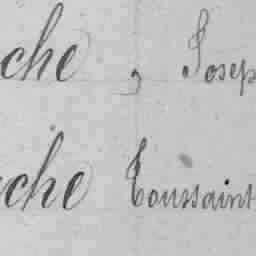 che , Josep
che Toussaint